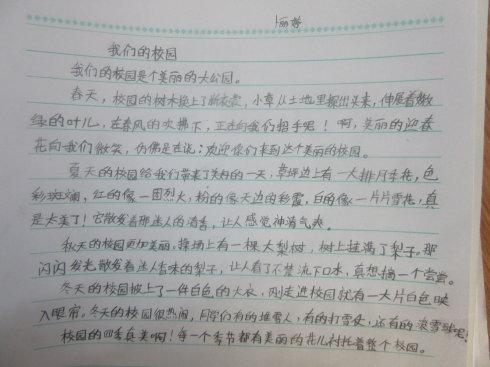 我们的校园
我们的校园是个美丽的大公园。
春天，校园的树木换上了新衣裳，小草从土地里探出头来，伸展着嫩
绿的叶儿，在春风的吹拂下，正在向我们招手呢！啊，美丽的迎春
花向我们微笑，仿佛是在说：欢迎你们来到这个美丽的校园。
夏天的校园给我们带来了美好的一天，草坪边上有一大排月季花，色
彩斑斓，红的像一团烈火，粉的像天边的彩霞，白的像一片片雪花，真
是太美了！它散发着那迷人的清香，让人感觉神清气爽。
秋天的校园更加美丽，操场上有一棵大梨树，树上挂满了梨子。那
闪闪发光散发着迷人香味的梨子，让人看了不禁流下口水，真想摘一个尝尝。
冬天的校园披上了一件白色的大衣，刚走进校园就有一大片白色映
入眼帘。冬天的校园很热闹，同学们有的堆雪人，有的打雪仗，还有的滚雪球呢！
校园的四季真美啊！每一个季节都有美丽的花儿衬托着整个校园。